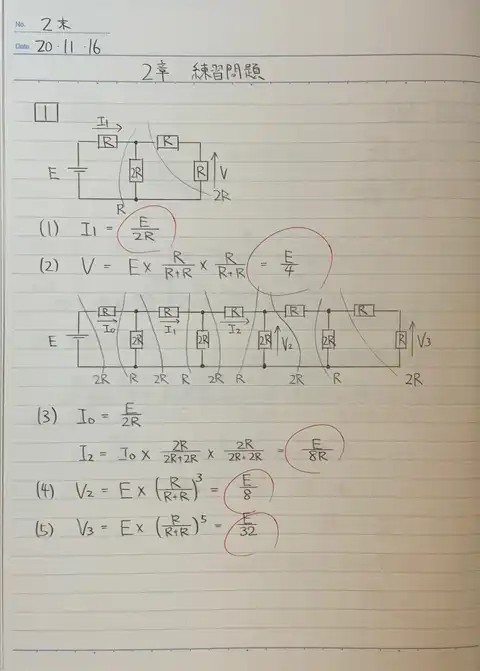 No. 2末
Date 20・11・16
2章 練習問題
1
I₁
R R
E 2R R V
R 2R
(1) I₁ = E/2R
(2) V = E × R/R+R × R/R+R = E/4
R R R R R
I₀ I₁ I₂
E 2R 2R 2R V₂ 2R R V₃
2R R 2R 2R R 2R R 2R
(3) I₀ = E/2R
I₂ = I₀ × 2R/2R+2R × 2R/2R+2R = E/8R
(4) V₂ = E × (R/R+R)³ = E/8
(5) V₃ = E × (R/R+R)⁵ = E/32